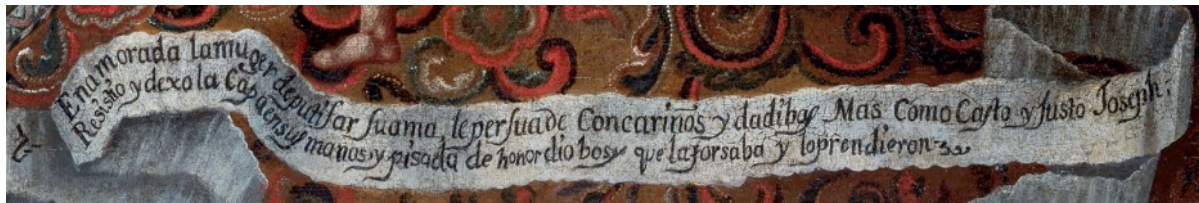 Enamorada lamuger deputifar suama, lepersuade Concariños y dadibas Mas Como Casto y Justo Joseph;
Resistio y dexo la Capaensus manos, y pisada de honor dio boses que laforsaba y loprendieron